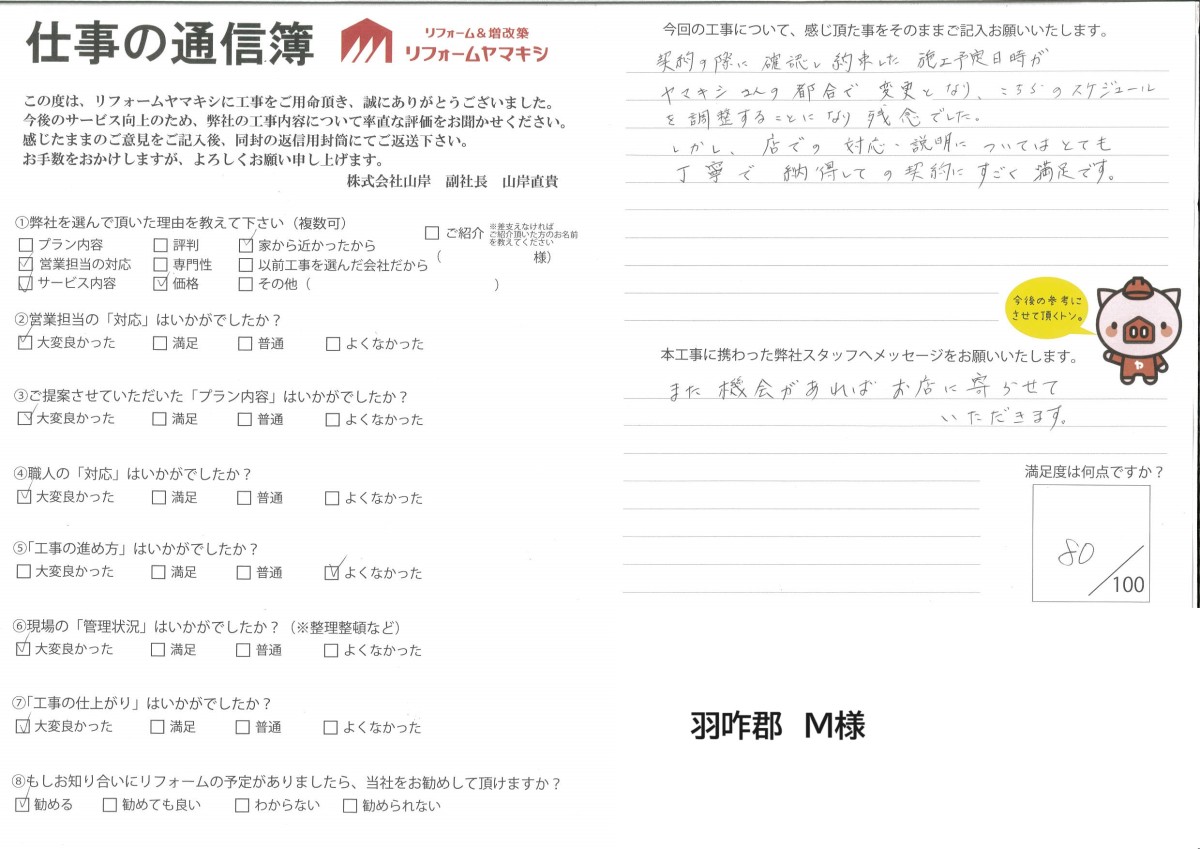 仕事の通信簿
リフォーム&増改築
リフォームヤマキシ
この度は、リフォームヤマキシに工事をご用命頂き、誠にありがとうございました。
今後のサービス向上のため、弊社の工事内容について率直な評価をお聞かせください。
感じたままのご意見をご記入後、同封の返信用封筒にてご返送下さい。
お手数をおかけしますが、よろしくお願い申し上げます。
株式会社山岸　副社長　山岸直貴
①弊社を選んで頂いた理由を教えて下さい（複数可）
□プラン内容 □評判 ☑家から近かったから □ご紹介 ※差支えなければ
ご紹介頂いた方のお名前
を教えてください
☑営業担当の対応 □専門性 □以前工事を選んだ会社だから （ 様）
☑サービス内容 ☑価格 □その他（ ）
②営業担当の「対応」はいかがでしたか？
☑大変良かった □満足 □普通 □よくなかった
③ご提案させていただいた「プラン内容」はいかがでしたか？
☑大変良かった □満足 □普通 □よくなかった
④職人の「対応」はいかがでしたか？
☑大変良かった □満足 □普通 □よくなかった
⑤「工事の進め方」はいかがでしたか？
□大変良かった □満足 □普通 ☑よくなかった
⑥現場の「管理状況」はいかがでしたか？（※整理整頓など）
☑大変良かった □満足 □普通 □よくなかった
⑦「工事の仕上がり」はいかがでしたか？
☑大変良かった □満足 □普通 □よくなかった
⑧もしお知り合いにリフォームの予定がありましたら、当社をお勧めして頂けますか？
☑勧める □勧めても良い □わからない □勧められない
今回の工事について、感じ頂た事をそのままご記入お願いいたします。
契約の際に確認し約束した施工予定日時が
ヤマキシさんの都合で変更となり、こちらのスケジュール
を調整することになり残念でした。
しかし、店での対応・説明についてはとても
丁寧で納得しての契約にすごく満足です。
今後の参考に
させて頂くトン。
ヤ
本工事に携わった弊社スタッフへメッセージをお願いいたします。
また機会があればお店に寄らせて
いただきます。
満足度は何点ですか？
80/100
羽咋郡　M様